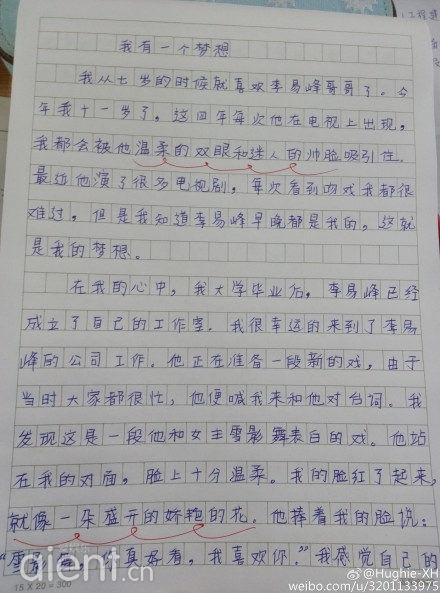 我有一个梦想
我从七岁的时候就喜欢李易峰哥哥了。今
年我十一岁了。这四年每次他在电视上出现,
我都会被他温柔的双眼和迷人的帅脸吸引住.
最近他演了很多电视剧,每次看到吻戏我都很
难过。但是我知道李易峰早晚都是我的。这就
是我的梦想。
在我的心中,我大学毕业后,李易峰已经
成立了自己的工作室。我很幸运的来到了李易
峰的公司工作。他正在准备一段新的戏,由于
当时大家都很忙,他便喊我来和他对台词。我
发现这是一段他和女主雪影舞表白的戏。他站
在我的对面,脸上十分温柔。我的脸红了起来,
就像一朵盛开的娇艳的花。他捧着我的脸说:
“雪影 你真好看,我喜欢你.”我感觉自己的
15 X 20 = 300
dient.cn
@Hughie-XH
weibo.com/u/3201133975